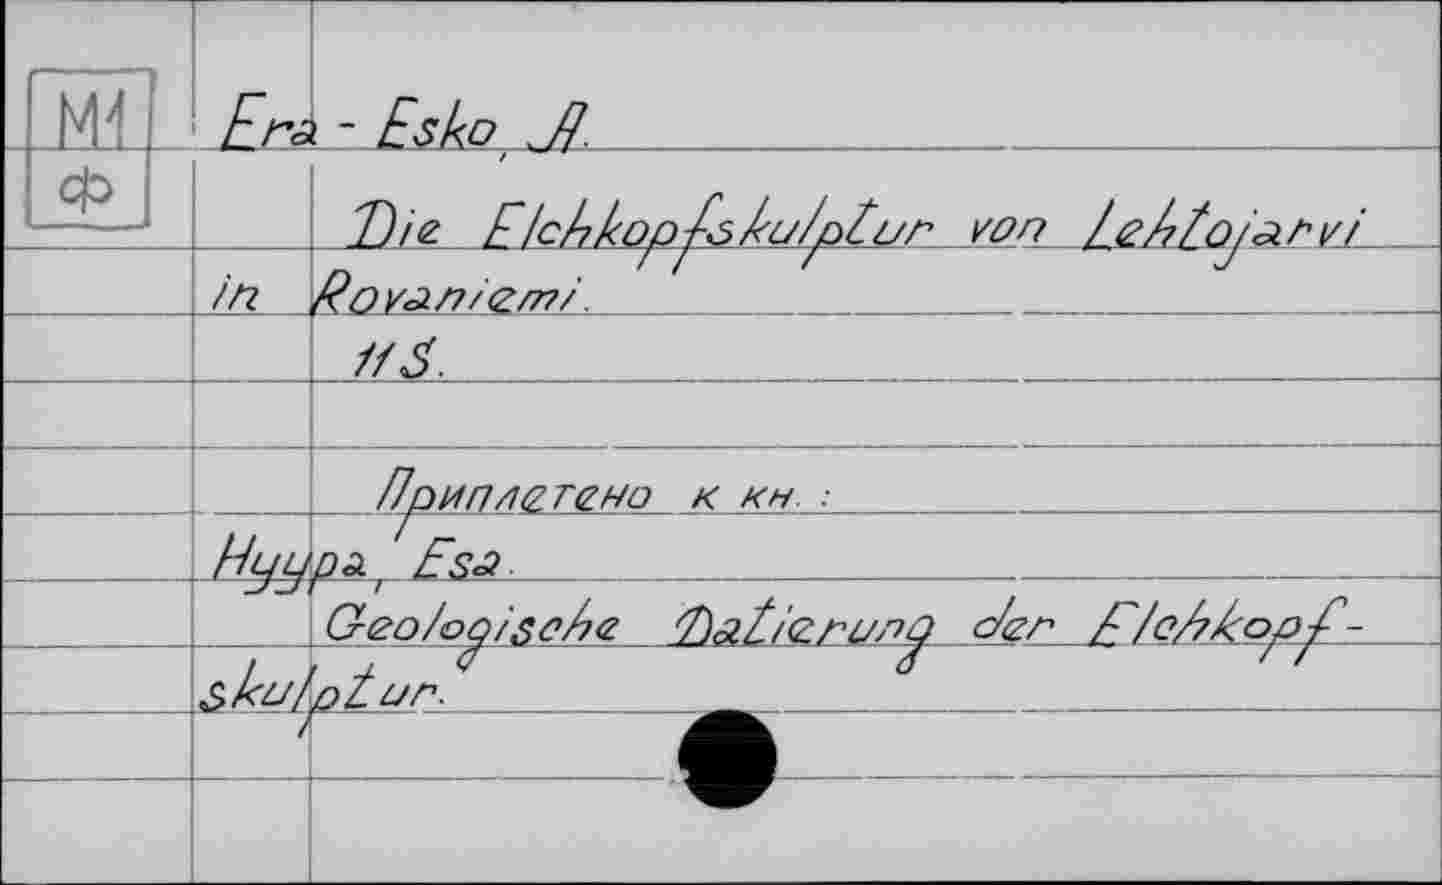 М1
ф
Era - Esko, A.
Die Elchkopfskulptur von Lehtojarvi
in Rovaniemi.
11 S.
Приплетено к кн. :
Hyypa, Esa.
Geologische Datierung der Elchkopf-
skulptur.